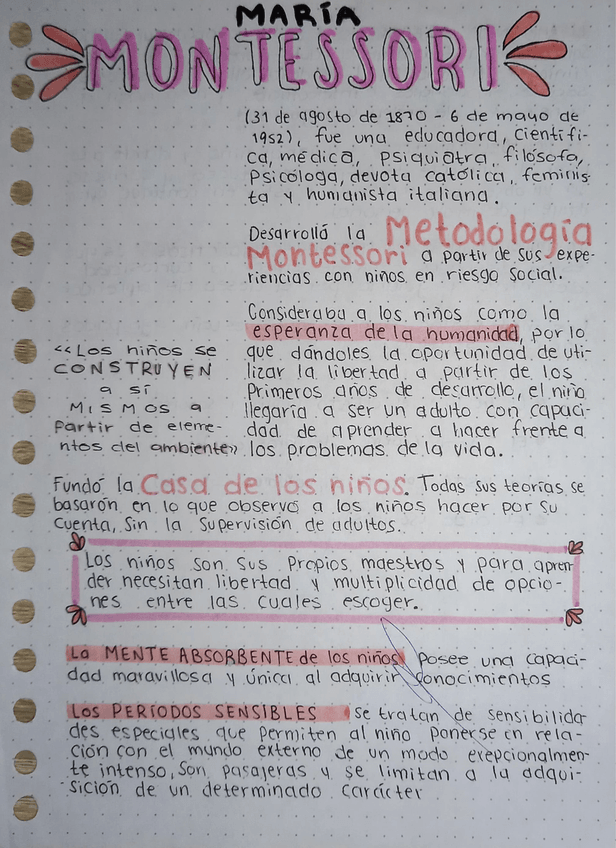 MARÍA
MONTESSORI
(31 de agosto de 1870 - 6 de mayo de
1952), fue una educadora, científi-
ca, médica, psiquiatra, filósofa,
psicóloga, devota católica, feminis-
ta y humanista italiana.
Desarrolló la Metodología
Montessori a partir de sus expe-
riencias con niños en riesgo social.
Consideraba a los niños como la
esperanza de la humanidad, por lo
que dándoles la oportunidad de uti-
lizar la libertad a partir de los
Primeros años de desarrollo, el niño
llegaría a ser un adulto con capaci-
dad de aprender a hacer frente a
los problemas de la vida.
<<Los niños se
CONSTRUYEN
a sí
MISMOS a
partir de eleme-
ntos del ambiente>>
Fundó la Casa de los niños. Todas sus teorías se
basarón en lo que observó a los niños hacer por su
cuenta, sin la supervisión de adultos.
Los niños son sus propios maestros y para apren
der necesitan libertad y multiplicidad de opcio-
nes entre las cuales escoger.
La MENTE ABSORBENTE de los niños posee una capaci-
dad maravillosa y única al adquirir conocimientos
Los PERÍODOS SENSIBLES se tratan de sensibilida
des especiales que permiten al niño ponerse en rela-
ción con el mundo externo de un modo exepcionalmen-
te intenso, son pasajeras y se limitan a la adqui-
sición de un determinado carácter